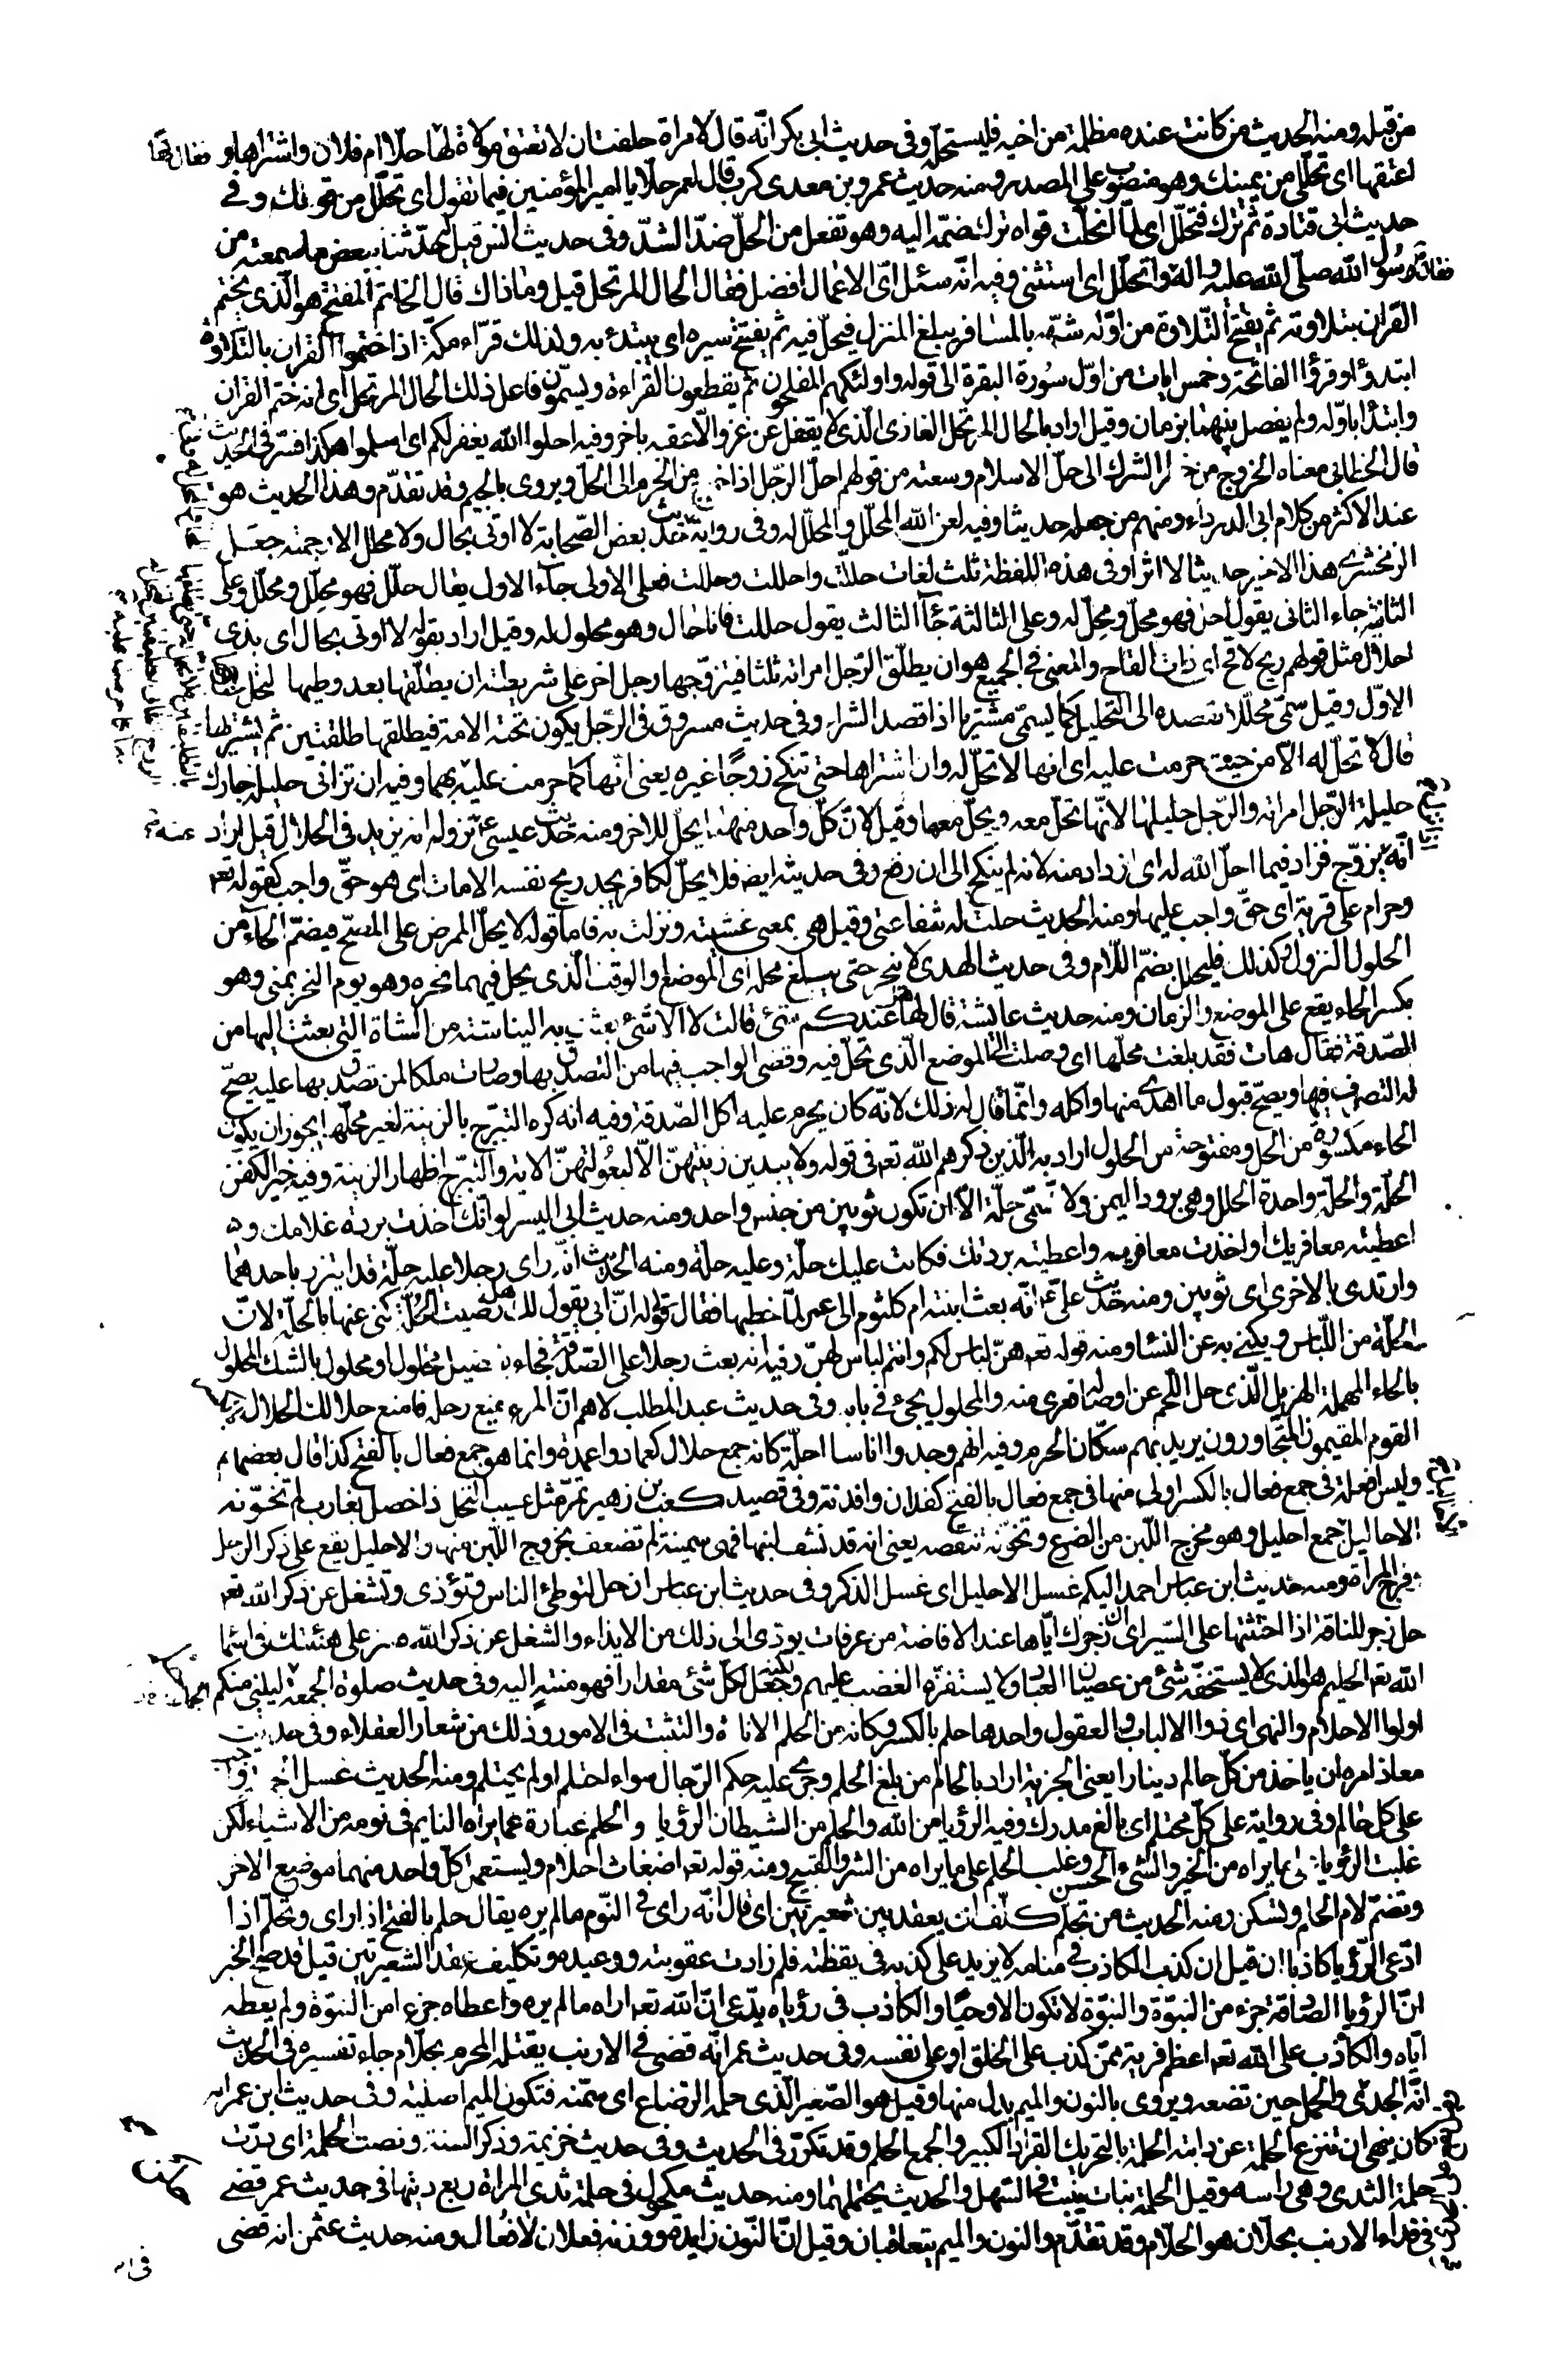 من قبله ومنه الحديث من كانت عنده مظلمة من اخيه فليستحله وفى حديث ابى بكر انّه قال لامراة حلفت ان لا تعتق مولاة لها حلّا ام فلان واشتراها و
اعتقها اى تحلّلى من يمينك وهو منصوب على المصدر ومنه حديث عمرو بن معدى كرب قال لعمر حلّا يا امير المؤمنين فيما تقول اى تحلّل من قولك وفى
حديث ابى قتادة ثم ترك فتحلّل اى لما انحلّت قواه ترك ضمّه اليه وهو تفعل من الحلّ ضدّ الشدّ وفى حديث انس قيل له حدّثنا ببعض ما سمعته من
رسول الله صلّى الله عليه واله واتحلّل اى استثنى وفيه انّه سئل اىّ الاعمال افضل فقال الحال المرتحل قيل وما ذاك قال الخاتم المفتتح هو الّذى يختم
القران بتلاوته ثم يفتتح التّلاوة من اوّله شبّهه بالمسافر يبلغ المنزل فيحلّ فيه ثم يفتتح سيره اى يبتدء به ولذلك قرّاء مكّة اذا ختموا القران بالتلاوة
ابتدؤا وقرؤا الفاتحة وخمس ايات من اوّل سورة البقرة الى قوله واولئك هم المفلحون ثم يقطعون القراءة ويسمّون فاعل ذلك الحال المرتحل اى انه ختم القران
وابتدأ باوّله ولم يفصل بينهما بزمان وقيل اراد بالحال المرتحل الغازى الّذى لا يقفل عن غزو الّا عقبه باخر وفيه احلوا الله يغفر لكم اى اسلموا هكذا فسّر فى الحديث
قال الخطابى معناه الخروج من الشرك الى حلّ الاسلام وسعته من قولهم احلّ الرّجل اذا خرج من الحرم الى الحلّ ويروى بالجيم وقد تقدّم وهذا الحديث هو
عند الاكثر من كلام ابى الدرداء ومنهم من جعله حديثا وفيه لعن الله المحلّل والمحلّل له وفى رواية بعض الصّحابة لا اوتى بحال ولا محلل الا رجمته جعل
الزمخشرى هذا الاخير حديثا لا اثرا وفى هذه اللفظة ثلث لغات حلّلت واحللت وحللت فعلى الاولى جاء الاول يقال حلّل فهو محلّل ومحلّل وعلى
الثانية جاء الثانى يقول احل فهو محلّ ومحلّ له وعلى الثالثة جاء الثالث يقول حللت فانا حال وهو محلول له وقيل اراد بقوله لا اوتى بحال اى بذى
احلال مثل قولهم ريح لاقح اى ذات القاح والمعنى فى الجميع هو ان يطلّق الرّجل امراته ثلثا فيتزوّجها رجل اخر على شريطة ان يطلّقها بعد وطيها لتحل
الاوّل وقيل سمّى محلّلا بقصده الى التحليل كما يسمّى مشتريا اذا قصد الشراء وفى حديث مسروق فى الرّجل يكون تحته الامة فيطلقها طلقتين ثم يشتريها
قال لا تحلّ له الّا من حيث حرمت عليه اى انها لا تحلّ له وان اشتراها حتى تنكح زوجًا غيره يعنى انّها كما حرمت عليه بهما وفيه ان تزانى حليلة جارك
حليلة الرّجل امراته والرّجل حليلها لانّها تحلّ معه ويحلّ معها وقيل لانّ كلّ واحد منهما يحلّ للاخر ومنه حديث عيسى عند نزوله انه يزيد فى الحلال قيل اراد
انّه يزوّج فزاد فيما احلّ الله له اى ازداد منه لانه لم ينكح الى ان رفع وفى حديثه ايضا فلا يحلّ لكافر يجد ريح نفسه الا مات اى هو حقّ واجب كقوله تعـ
وحرام على قرية اى حقّ واجب عليها ومنه الحديث حلت له شفاعتى وقيل هى بمعنى غشيته ونزلت به فاما قوله لا يحلّ الممرض على المصحّ فبضمّ الحاء من
الحلول النزول وكذلك فليحلل بضمّ اللّام وفى حديث الهدى لا ينحر حتى يبلغ محله اى الموضع والوقت الّذى يحل فيهما نحره وهو يوم النحر بمنى وهو
بكسر الحاء يقع على الموضع والزمان ومنه حديث عايشة قال لها هل عندكم شئ قالت لا الا شئ بعثت به الينا نسيبة من الشاة التى بعثت اليها من
الصّدقة فقال هات فقد بلغت محلّها اى وصلت الى الموضع الّذى تحلّ فيه وقضى الواجب فيها من التصدّق بها وصارت ملكا لمن تصدّق بها عليه يصحّ
له التصرف فيها ويصحّ قبول ما اهدى منها واكله وانّما قال له ذلك لانّه كان يحرم عليه اكل الصّدقة وفيه انه كره التبرّج بالزينة لغير محلّها يجوز ان يكون
الحاء مكسورة من الحل ومفتوحة من الحلول اراد به الّذين ذكرهم الله تعـ فى قوله ولا يبدين زينتهنّ الّا لبعولتهنّ الاية والتبرّج اظهار الزينة وفيه خير الكفن
الحلّة والحلّة واحدة الحلل وهى برود اليمن ولا تسمّى حلّة الّا ان تكون ثوبين من جنس واحد ومنه حديث ابى اليسر لو انّك اخذت بردة غلامك و
اعطيته معافريك او اخذت معافريه واعطيته بردتك فكانت عليك حلّة وعليه حلّة ومنه الحديث انّه راى رجلا عليه حلّة قد ايتزر باحدهما
وارتدى بالاخرى اى ثوبين ومنه حديث على انّه بعث ابنته ام كلثوم الى عمر لمّا خطبها فقال قولى له انّ ابى يقول لك هل رضيت الحلّة كنى عنها بالحلّة لانّ
الحلّة من اللّباس ويكنى به عن النساء ومنه قوله تعـ هنّ لباس لكم وانتم لباس لهنّ وفيه انه بعث رجلا على الصّدقة فجاء بفصيل مخلول او محلول بالشك المحلول
بالحاء المهملة الهزيل الّذى حل اللّحم عن اوصاله فعرى منه والمحلول يجئ فى بابه وفى حديث عبد المطلب لاهمّ انّ المرء يمنع رحله فامنع حلالك الحلال
القوم المقيمون المتجاورون يريد بهم سكّان الحرم وفيه انهم وجدوا اناسا احلّة كانه جمع حلال كعماد واعمدة وانما هو جمع فعال بالفتح كذا قال بعضهم
وليس افعلة فى جمع فعال بالكسر اولى منها فى جمع فعال بالفتح كفدان وافدنة وفى قصيد كعب بن زهير تمرّ مثل عسيب النخل ذا خصل بغارب لم تخوّنه
الاحاليل جمع احليل وهو مخرج اللّبن من الضرع وتخوّنه تنقصه يعنى انه قد نشف لبنها فهى سمينة لم تضعف بخروج اللّبن منها والاحليل يقع على ذكر الرجل
وفرج المراة ومنه حديث ابن عباس احمد اليكم غسل الاحليل اى غسل الذكر وفى حديث ابن عباس ان حل لتوطئ الناس وتؤذى وتشغل عن ذكر الله تعـ
حل زجر للناقة اذا حثثتها على السّير اى ان زجرك ايّاها عند الافاضة من عرفات يودى الى ذلك من الايذاء والشغل عن ذكر الله فسر على هينتك فى اسماء
الله تعـ الحليم هو الذى لا يستخفّه شئ من عصيان العباد ولا يستفزّه الغضب عليهم ولكنه جعل لكلّ شئ مقدارا فهو منتهٍ اليه وفى حديث صلوة الجمعة ليلنى منكم
اولوا الاحلام والنهى اى ذووا الالباب والعقول واحدها حلم بالكسر وكانه من الحلم الاناة والتثبت فى الامور وذلك من شعار العقلاء وفى حديث
معاذ امره ان ياخذ من كلّ حالم دينارا يعنى الجزية اراد بالحالم من بلغ الحلم وجرى عليه حكم الرّجال سواء احتلم او لم يحتلم ومنه الحديث غسل الجمعة
على كل حالم وفى رواية على كلّ محتلم اى بالغ مدرك وفيه الرؤيا من الله والحلم من الشيطان الرؤيا والحلم عبارة عما يراه النايم فى نومه من الاشياء لكن
غلبت الرؤيا على ما يراه من الخير والشئ الحسن وغلب الحلم على ما يراه من الشر والقبيح ومنه قوله تعـ اضغاث احلام ويستعمل كلّ واحد منهما موضع الاخر
وتضمّ لام الحلم وتسكن ومنه الحديث من تحلّم كلّف ان يعقد بين شعيرتين اى قال انّه راى فى النّوم ما لم يره يقال حلم بالفتح اذا راى وتحلّم اذا
ادّعى الرّؤيا كاذبا ان قيل ان كذب الكاذب فى منامه لا يزيد على كذبه فى يقظته فلم زادت عقوبته ووعيده وتكليفه عقد الشعيرتين قيل قد صحّ الخبر
انّ الرؤيا الصّادقة جزء من النبوّة والنبوّة لا تكون الا وحيًا والكاذب فى رؤياه يدّعى انّ الله تعـ اراه ما لم يره واعطاه جزءا من النبوّة ولم يعطه
ايّاه والكاذب على الله تعـ اعظم فرية ممّن كذب على الخلق او على نفسه وفى حديث عمر انّه قضى فى الارنب يقتله المحرم بحلّام جاء تفسيره فى الحديث
انّه الجدى والحمل حين تضعه ويروى بالنون والميم بدل منها وقيل هو الصّغير الّذى حلمه الرضاع اى سمّنه فتكون الميم اصلية وفى حديث ابن عمر انه
كان ينهى ان تنزع الحلمة عن دابته الحلمة بالتحريك القراد الكبير والجمع الحلم وقد تكرّر فى الحديث وفى حديث خزيمة وذكر السنة وبضت الحلمة اى درّت
حلمة الثدى وهى راسه وقيل الحلمة نبات ينبت فى السّهل والحديث يحتملهما ومنه حديث مكحول فى حلمة ثدى المراة ربع ديتها فى حديث عمر قضى
فى فداء الارنب بحلّان هو الحلّام وقد تقدّم والنون والميم يتعاقبان وقيل انّ النّون زايدة ووزنه فعلان لا فعّال ومنه حديث عثمن انه قضى